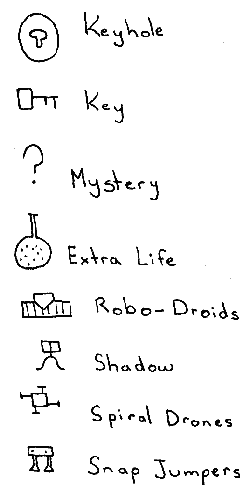 Keyhole
Key
? Mystery
Extra Life
Robo-Droids
Shadow
Spiral Drones
Snap Jumpers